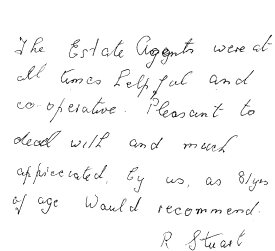 The Estate Agents were at
all times helpful and
co-operative. Pleasant to
deal with and much
appreceated, by us, as 81yrs
of age would recommend.
R Stuart